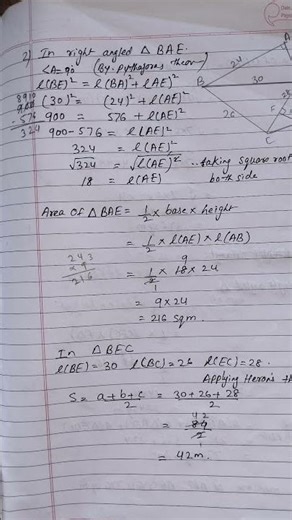 2) In right angled △ BAE.
∠A = 90° (By pythagoras theorem)
l(BE)² = l(BA)² + l(AE)²
(30)² = (24)² + l(AE)²
900 = 576 + l(AE)²
900 - 576 = l(AE)²
324 = l(AE)²
√324 = √l(AE)² .. taking square root
both side
18 = l(AE)
8 9 10
900
- 576
324
A
24
B
30
26
28
E
C
Area of △BAE = 1/2 × base × height
= 1/2 × l(AE) × l(AB)
9
= 1/2 × 18 × 24
1
= 9 × 24
= 216 sqm.
24 3
× 9
216
In △ BEC
l(BE) = 30 l(BC) = 26 l(EC) = 28.
Applying Heron's
S = a+b+c/2 = 30+26+28/2
42
= 84/2
1
= 42m.